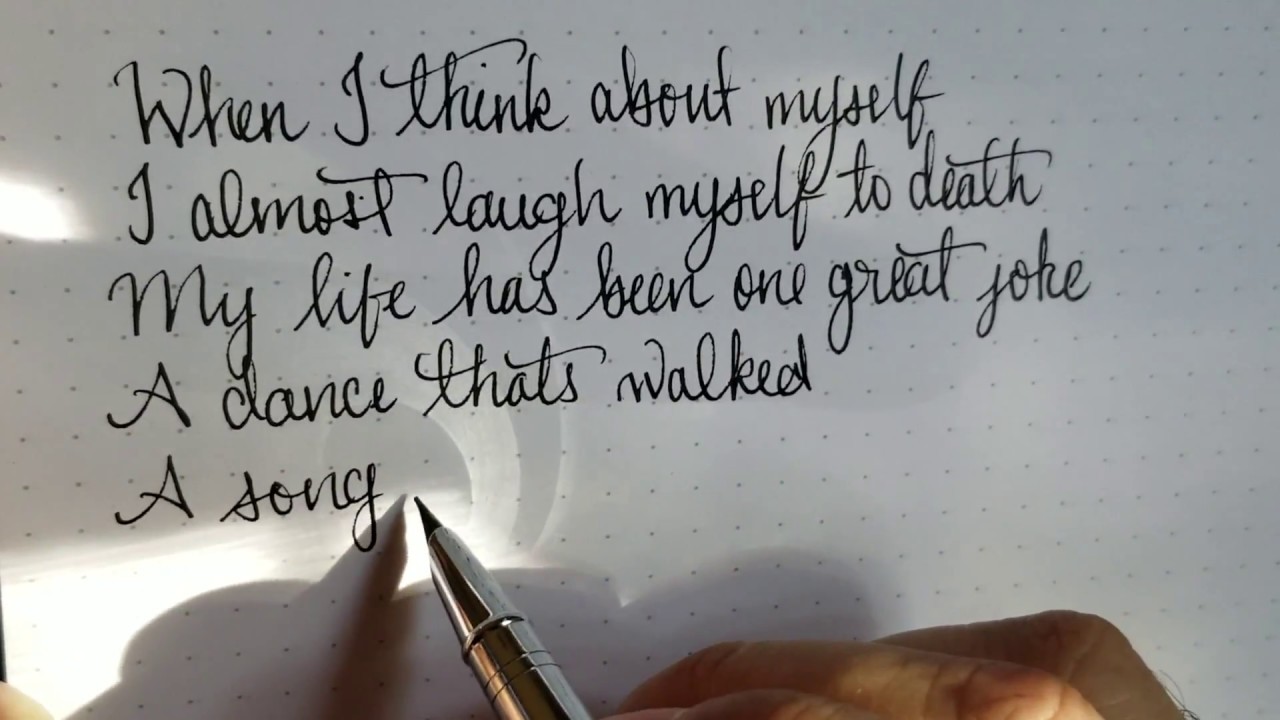 When I think about myself
I almost laugh myself to death
My life has been one great joke
A dance thats walked
A song